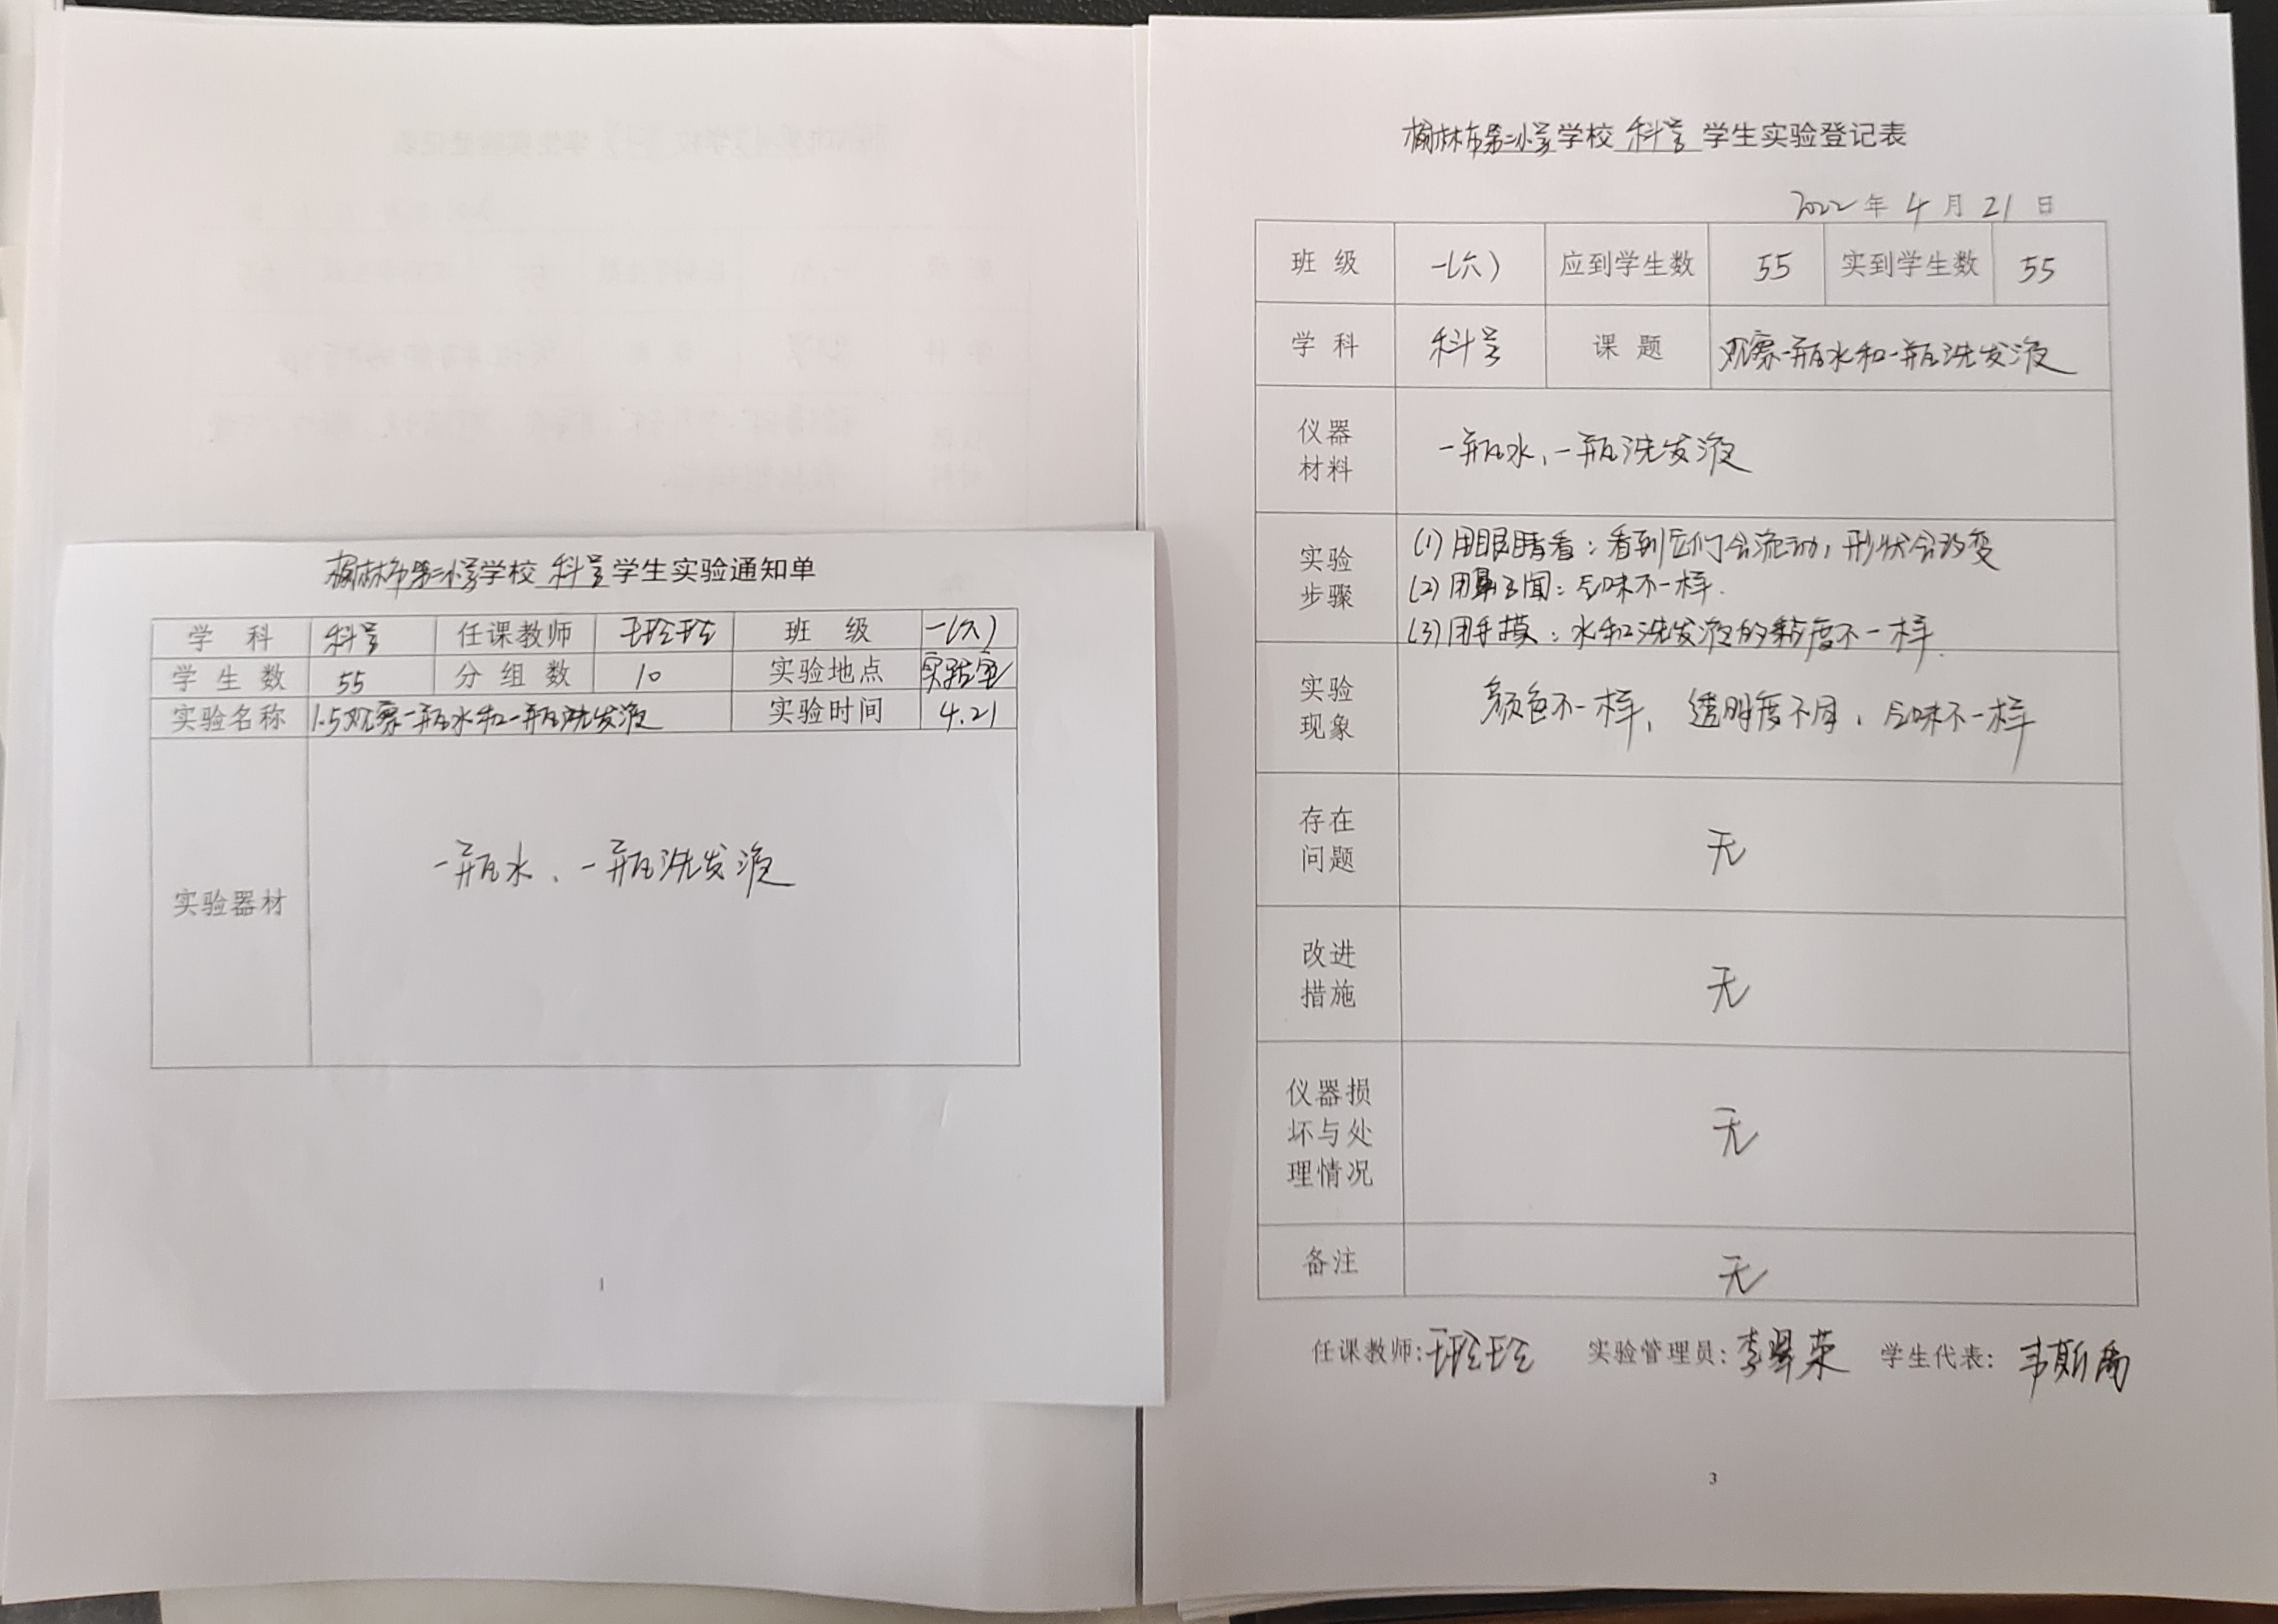 榆林市第二小学学校 科学 学生实验通知单
学 科 科学 任课教师 王珍珍 班 级 一(六)
学 生 数 55 分 组 数 10 实验地点 实验室
实验名称 1.5观察一瓶水和一瓶洗发液 实验时间 4.21
实验器材 一瓶水、一瓶洗发液
1
榆林市第二小学学校 科学 学生实验登记表
2022 年 4 月 21 日
班 级 一(六) 应到学生数 55 实到学生数 55
学 科 科学 课 题 观察一瓶水和一瓶洗发液
仪器
材料
一瓶水、一瓶洗发液
实验
步骤
(1) 用眼睛看：看到它们会流动，形状会改变
(2) 用鼻子闻：气味不一样.
(3) 用手摸：水和洗发液的黏度不一样.
实验
现象
颜色不一样，透明度不同，气味不一样
存在
问题
无
改进
措施
无
仪器损
坏与处
理情况
无
备注 无
任课教师: 王珍珍 实验管理员: 李翠荣 学生代表: 韦斯禹
3